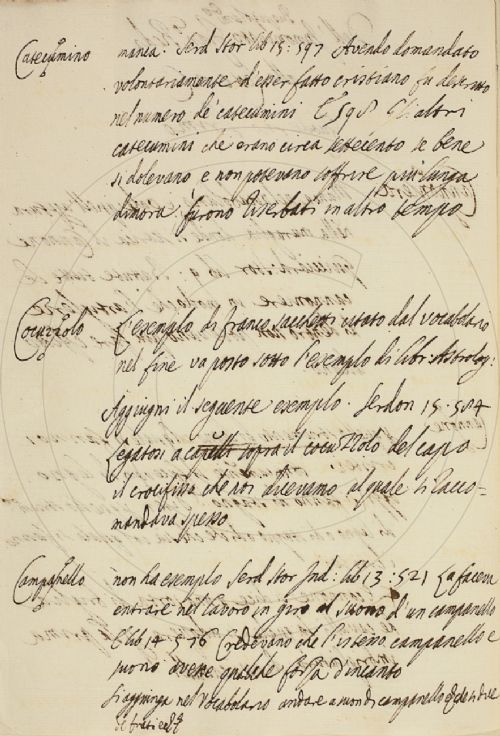 Catecumino manca. Serd Stor lib 15: 597 Avendo domandato
volontariamente d'esser fatto cristiano fu descritto
nel numero de' catecumini E 598 Gli altri
catecumini che erano circa settecento se bene
si dolevano e non potevano soffrire più lunga
dimora furono riserbati in altro tempo
Cocuzzolo L'esempio di franco sacchetti citato dal vocabolario
nel fine va posto sotto l'esempio di libr: Astrolog:
Aggiugni il seguente esempio. Serdon 15. 584
Legatosi a sopra il cocuzzolo del capo
il crocifisso che noi dicevamo al quale si racco-
mandava spesso
Campanello non ha esempio Serd Stor Ind: lib 13: 521 La faceva
entrare nel lavoro in giro al suono d'un campanello
E lib 14 576 Credevano che l'istesso campanello e
suono avesse qualche forza d'incanto
Si aggiunga nel Vocabolario andare a suon di campanello